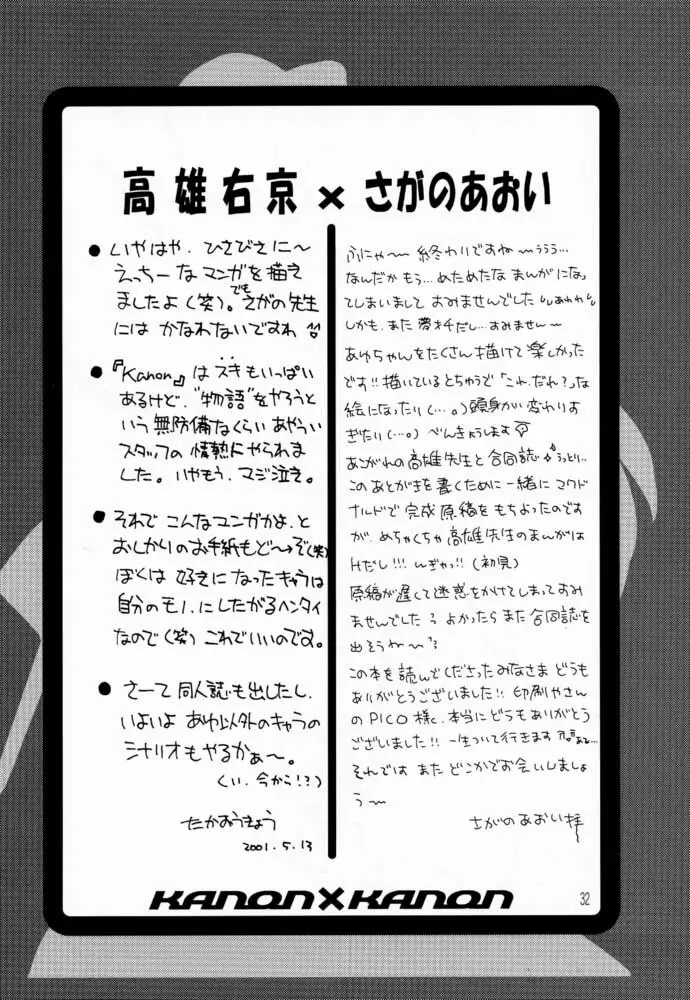 高雄右京×さがのあおい
● いやはや、ひさびさに〜
えっちーなマンガを描え
ましたよ(笑)。でもさがの先生
には かなわないですわ
● 『Kanon』は スキもいっぱい
あるけど、"物語"をやろうと
いう 無防備なくらい あやうい
スタッフの 情熱にやられま
した。いやもう、マジ泣き。
● それで こんなマンガかよ、と
おしかりのお手紙もど〜ぞ(笑)
ぼくは 好きになったキャラは
自分のモノにしたがるヘンタイ
なので(笑) これでいいのです。
● さーて 同人誌も出したし、
いよいよ あゆ以外のキャラの
シナリオもやるかぁ〜。
(い、今から!?)
たかおうきょう
2001.5.13
ふにゃ〜 終わりですね〜ううう…
なんだか もう…めためたな まんがになっ
てしまいまして すみませんでした あわわ
しかも、また 夢オチだし…すみません〜
あゆちゃんをたくさん 描けて楽しかった
です!!描いているとちゅうで「これ、だれ?」な
絵になったり(…。)頭身が変わりす
ぎたり(…。)べんきょうします
あこがれの高雄先生と 合同誌 うっとり…
このあとがきを書くために 一緒に マクド
ナルドで 完成原稿を もちよったのです
が、めちゃくちゃ高雄先生のまんがは
Hだし!!!んぎゃっ!!(初見)
原稿が遅くて迷惑をかけてしまってすみ
ませんでした よかったらまた合同誌を
出そうね〜
この本を読んでくださったみなさま どうも
ありがとうございました!!印刷やさん
のPICO様、本当にどうもありがとう
ございました!!一生ついて行きます
それでは また どこかでお会いしましょ
う〜
さがのあおい拝
KANON×KANON
32